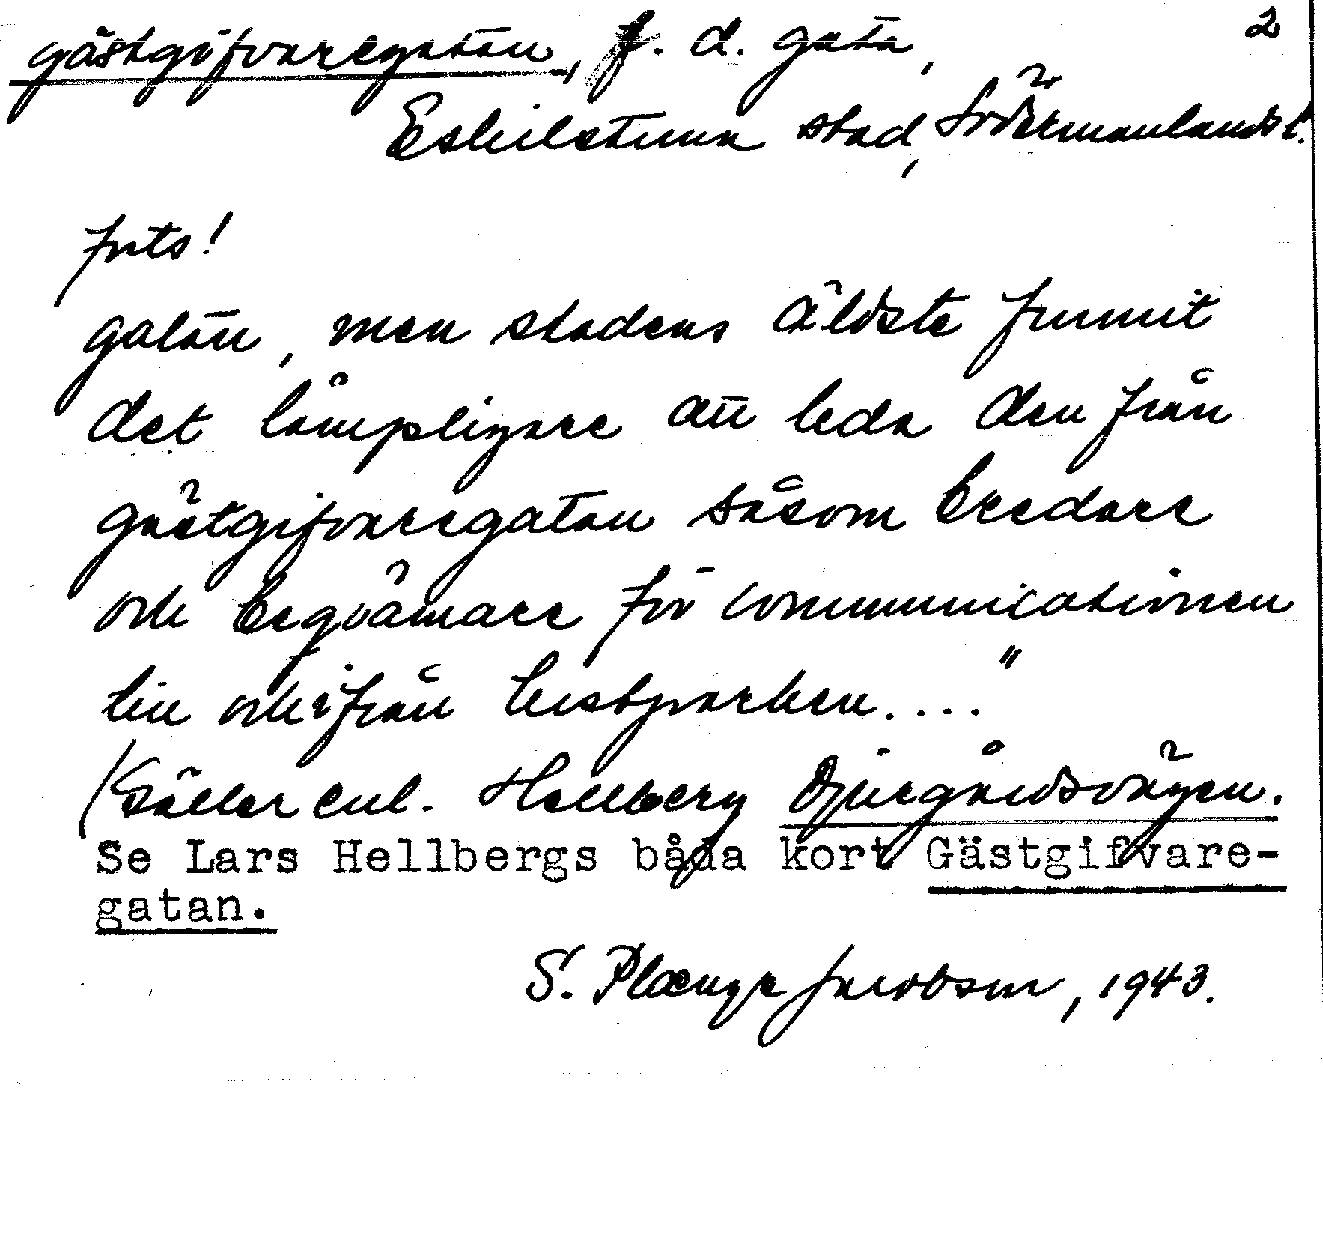 Gästgifvaregatan, f. d. gata, 2
Eskilstuna stad, Södermanlands l.
forts!
gatan, men stadens Äldste funnit
det lämpligare att leda den från
gästgifvaregatan såsom bredare
och beqvämare för communicationen
till och ifrån Tuistparken...."
(Källor enl. Hellberg Djurgårdsvägen.
Se Lars Hellbergs båda kort Gästgifvare-
gatan.
S. Jacobson, 1943.